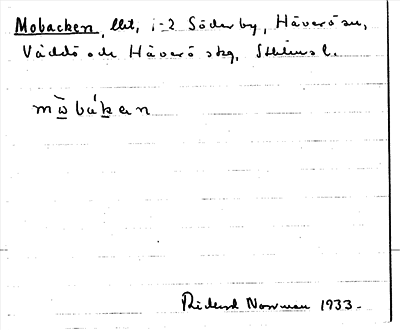 Mobacken, lht, i-2 Söderby, Häverö sn,
Väddö och Häverö skg, Sthlms l.
mὼbákan
Rickard Norrman 1933.